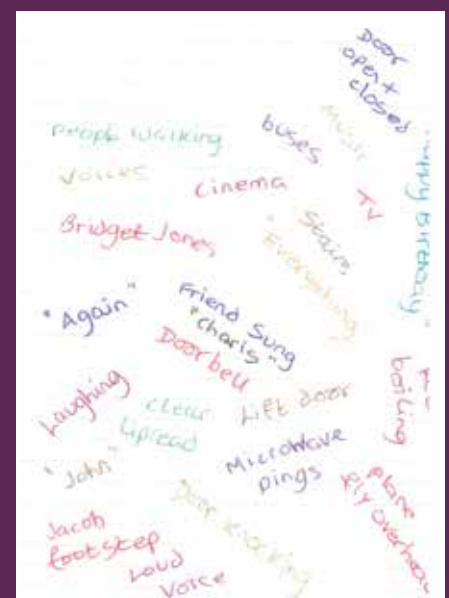 Door
open +
closed
people walking
buses
Music
voices
cinema
TV
Birthday"
Bridget Jones
Stairs
"Everything"
"Again"
Friend Sung
"charis"
Doorbell
boiling
Laughing
clear
lipread
Lift door
"John"
Microwave
pings
plane
fly overhead
Door knocking
Jacob
footstep
Loud
Voice